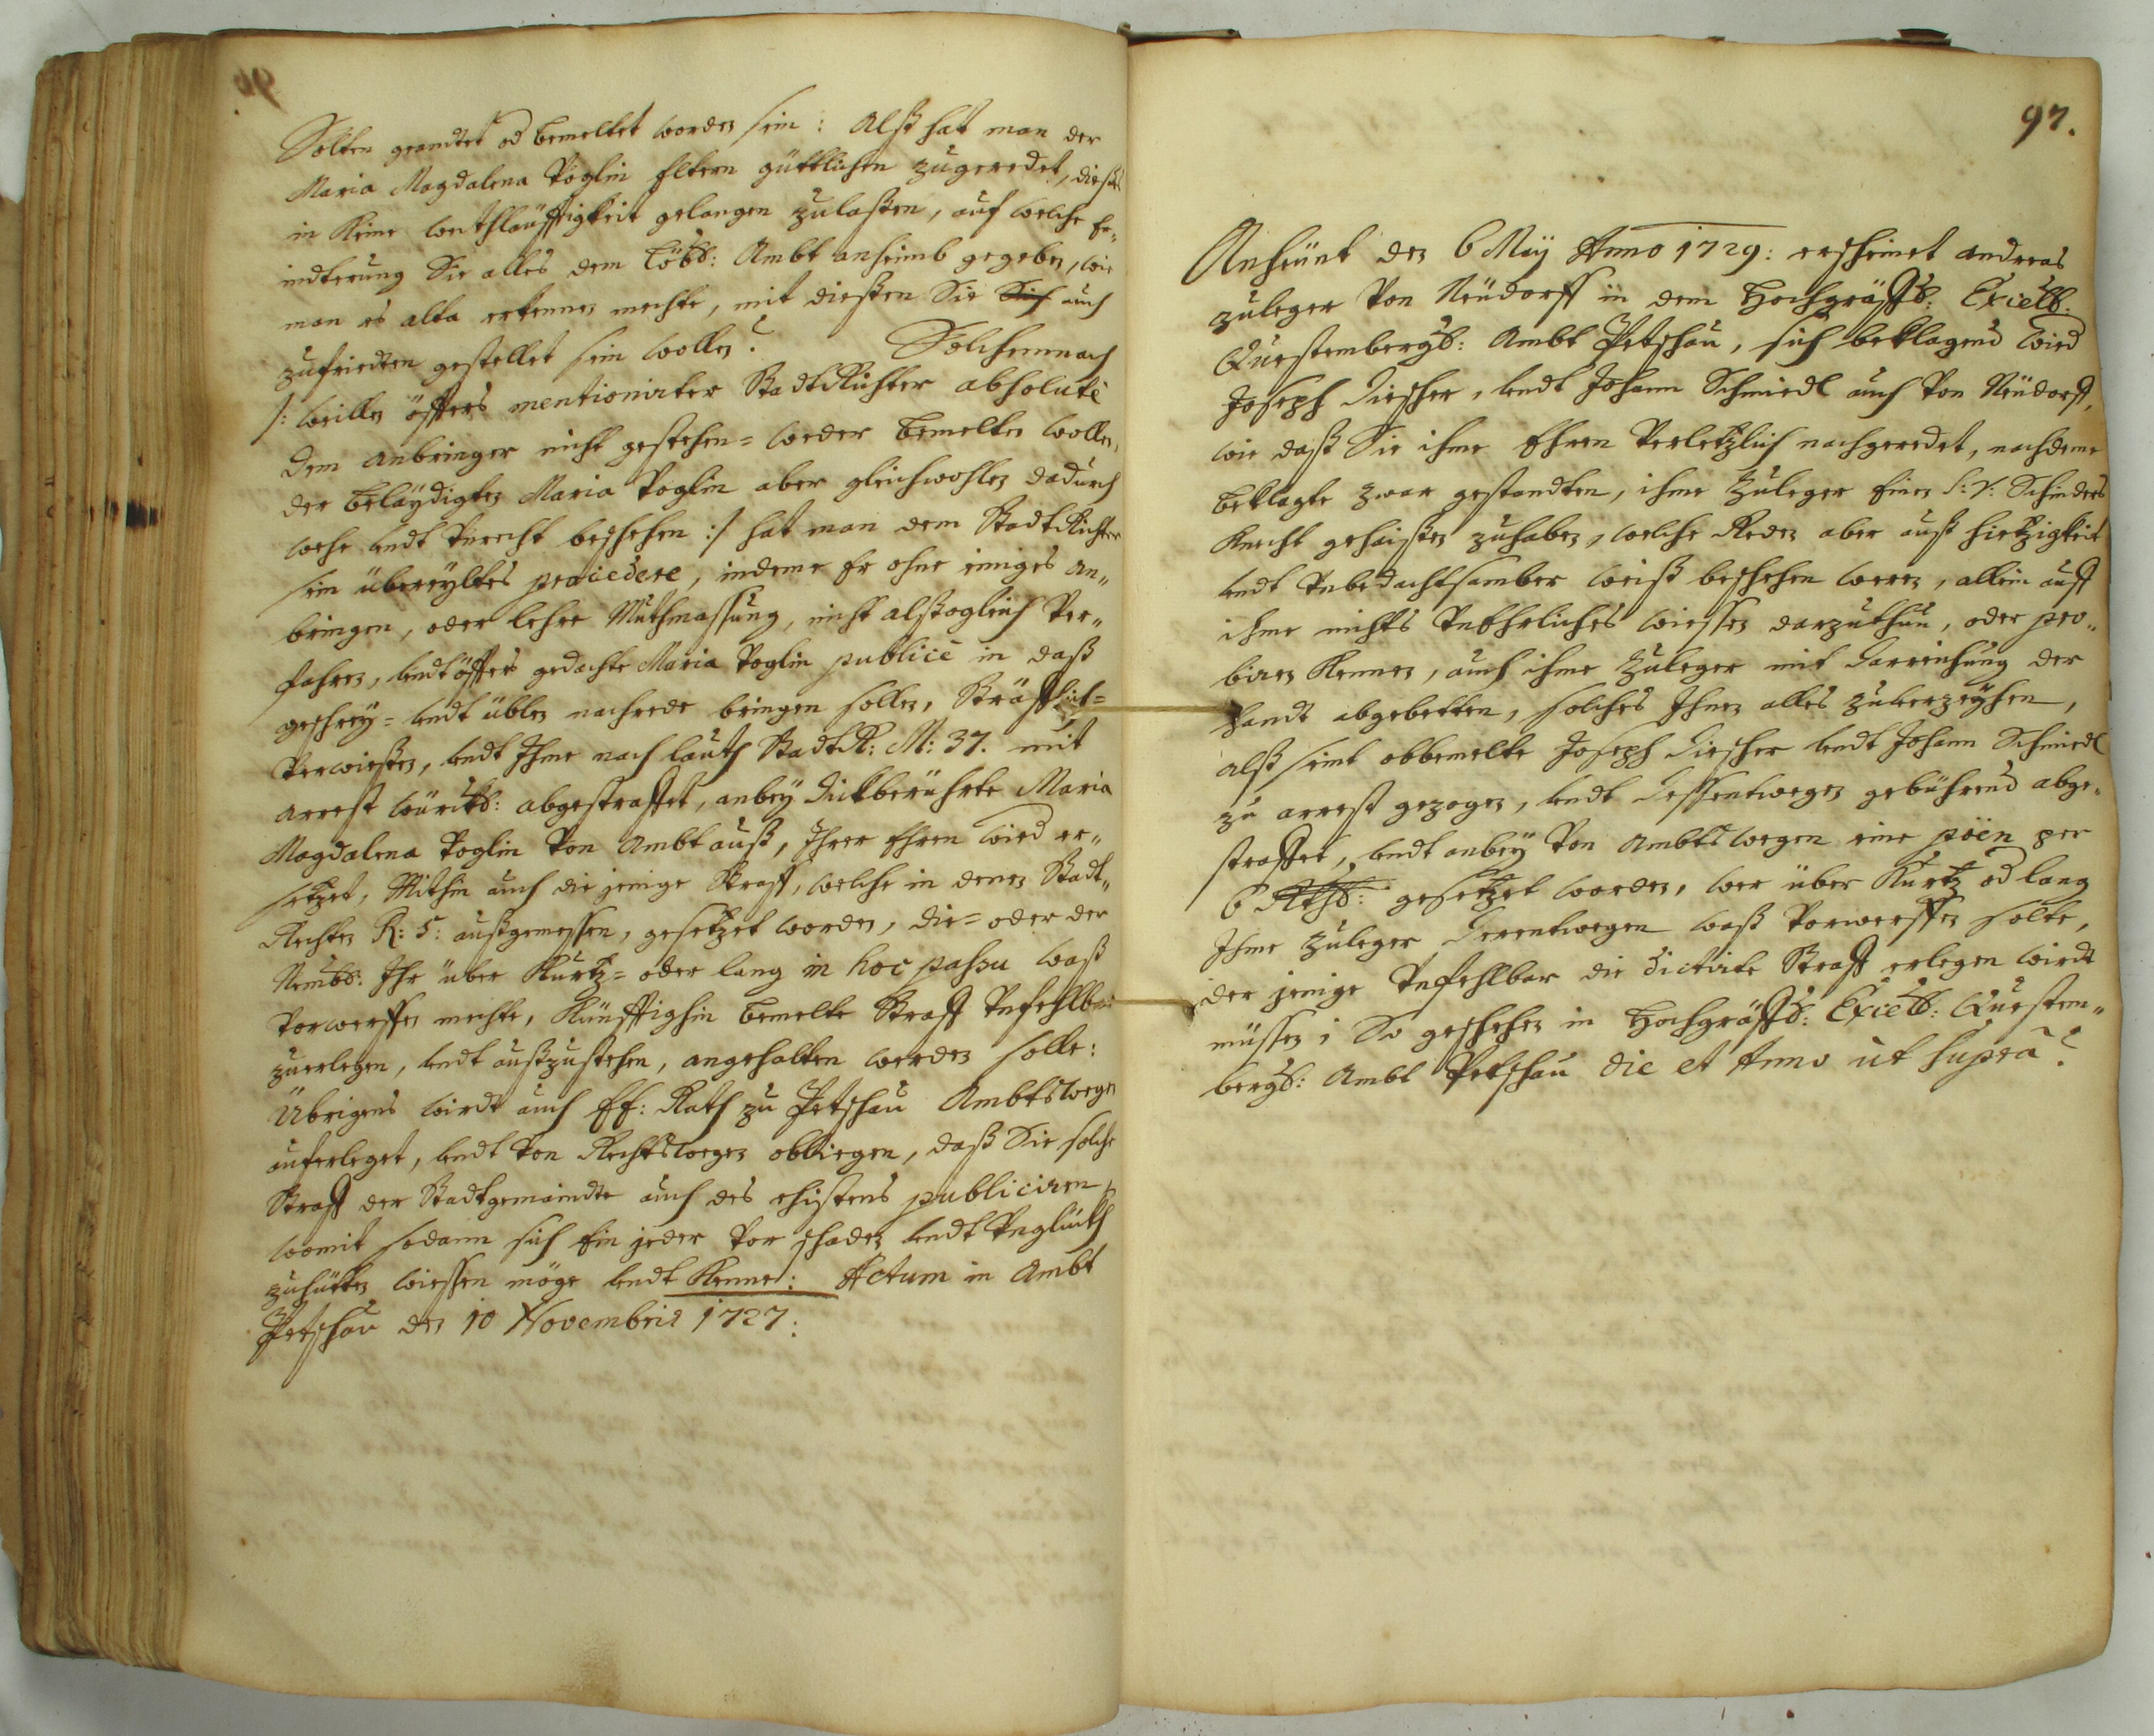 Solten geandtet od bemeltet worden sein: Alß hat man der
Maria Magdalena Poglin Eltern güttlichen zugeredet, dießes
in Keine weithläuffigkeit gelangen zulaßen, auf welche Er-
indterung Sie alles dem Löbl: Ambt anheimb gegeben, wie
man es alta erkennen mechte, mit dießen Sie Sich auch
zufrieden gestellet sein wollen. Solchemnach
/: weillen öffters mentionirter StadtRichter absolutè
dem anbringer nicht gestehen= weder bemelten wollen,
der beläydigten Maria Poglin aber gleichwohlen dadurch
wehe undt Unrecht beschehen :/ hat man dem StadtRichter
sein übereyltes procedere, indeme Er ohne einiges an-
bringen, oder lehre Muthmassung, nicht alßogleich Ver-
fahren, undt öffters gedachte Maria Poglin publicè in daß
geschrey= undt üblen nachrede bringen sollen, Sträfflich=
Verwießen, undt Ihme nach lauth StadtR: M: 37. mit
arrest würckl: abgestraffet, anbey dickberührte Maria
Magdalena Poglin Von Ambt auß, Ihrer Ehren wird er-
setzet, Mithin auch die jenige Straff, welche in denen Stadt-
Rechten R: 5: außgemessen, gesetzet worden, die= oder der
Nembl: Ihr über Kurtz= oder lang in hoc passu waß
Vorwerffen mechte, Künfftighin bemelte Straff Unfehlbar
zuerlegen, undt außzustehen, angehalten werden solle:
Übrigens wirdt auch EE: Rath zu Petschau Ambtswegen
auferleget, undt Von Rechtswegen obliegen, daß Sie solche
Straff der Stadtgemaindte auch des ehistens publiciren,
womit sodann sich Ein jeder Vor schaden undt Unglückh
zuhütten wiessen möge undt Kenne: Actum in Ambt
Petschau den 10 Novembris 1727:
97.
Anheünt den 6 Maÿ Anno 1729: erscheinet andreas
Zuleger Von Neüdorff in dem Hochgräffl: Excell:
Questembergl: Ambt Petschau, sich beklagend wied
Joseph Fischer, undt Johann Schmiedl auch Von Neüdorff,
wie daß Sie ihme Ehren Verletzlich nachgeredet, nachdeme
beklagte zwar gestandten, ihme Zuleger Einen S: V: Schinders
Knecht gehaißen zuhaben, welche Reden aber auß hietzigkeit
undt Unbedachtsamber weiß beschehen weren, allein auff
ihme nichts Unehrliches wiessen darzuthun, oder pro-
biren Kennen, auch ihme Zuleger mit Darreichung der
handt abgebetten, solches Ihnen alles zuverzeyhen,
alß seint obbemelte Joseph Fischer undt Johann Schmiedl
zu arrest gezogen, undt Dessentwegen gebührend abge-
straffet, undt anbey Von Ambts wegen eine pöen per
6 Rthl: gesetzet worden, wer über Kurtz od lang
Ihme Zuleger Derentwegen waß Vorwerffen solte,
der jenige Unfehlbar die dictirte Straff erlegen wirdt
müssen; So geschehen in Hochgräffl: Excell: Questem-
bergl: Ambt Petschau die et Anno ut supra